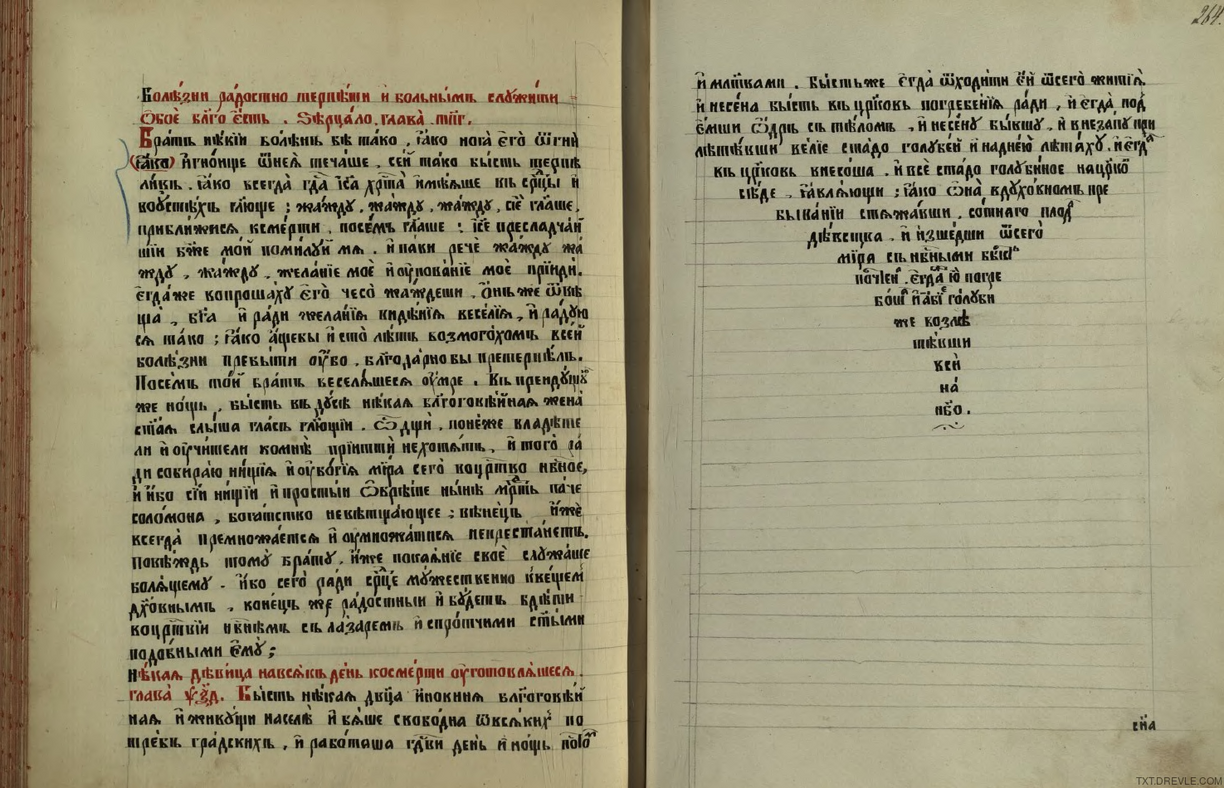 Болѣзни радостно терпѣти и҆ больнымъ слꙋжити
Обоѐ бл҃го є҆́сть . Зерцало . глава
Братъ нѣкїи боленъ бѣ тако , ꙗ҆́ко нога є҆гѡ̀ ѿгни
(ꙗ҆́ко) и҆гноище ѿнея̀ течаше , сеи тако бысть терпѣ
ливъ . ꙗ҆́ко всегда гд҇а і҆с҃а хр҇та̀ и҆мѣѧше въ ср҇цы и҆
воꙋстѣхъ гл҃юще ; жажду , жажду , жажду , сїѐ гл҃аше ,
приближися ксмерти , посемъ гл҃аше : і҆с҃е пресладчаи
шїи бж҃е мо́и помилуи мѧ . и҆ паки речѐ жажду жа
жду , жажду , желанїе моѐ и҆ ѹ҆пованїе моѐ прїиди .
є҆гда же вопрошахꙋ є҆гѡ̀ чесѡ̀ жаждеши . ѻ҆нъ же ѿвѣ
ща , бг҃а и҆ ради желанїѧ видѣнїѧ веселїѧ , и҆ радую
сѧ тако ; ꙗ҆́ко а҆щебы и҆ сто̀ лѣтъ возмогохомъ всеи
болѣзни пребыти ѹ҆бо , благодарно бы претерпѣлъ .
Посемъ то́и братъ веселѧшесѧ ѹ҆мре . Въ
же нощь , бысть въ дꙋсѣ нѣкая бл҃гоговѣинаѧ жена
ст҃аѧ слыша гласъ гл҃ющїи . Ѽ дщи , понеже владѣте
ли и҆ ѹ҆чители комнѣ прїитти нехотѧтъ , и҆ тогѡ̀ ра
ди собираю нищїѧ и҆ ѹ҆богїѧ мїра сего воцр҇тво нб҇ное ,
и҆́бо сїи нищїи и҆ простыи ѡ҆брѣте нынѣ мрть паче
соломона , богатство неветшающее ; вѣнецъ и҆́же
всегда премножаетсѧ и҆ ѹ҆множатисѧ непрестанетъ .
Повѣждь томꙋ братꙋ , и҆́же покаѧнїе своѐ слꙋжаше
болѧщемꙋ . и҆́бо сего̀ ради ср҇це мꙋжественно
дх҃овными , конецъ же радостныи и҆ бꙋдетъ бдѣти
воцр҇твїи нб҇нѣмъ съ лазаремъ и҆ спро́тчими ст҃ыми
подобными є҆мꙋ̀ ;
Нѣкаѧ дѣвица навсѧкъ день космерти ѹ҆готовлѧшесѧ .
глава . Бысть нѣкаѧ дв҃ца и҆нокинѧ бл҃гоговѣи
наѧ и҆ живꙋщи населѣ и҆ бѧше свободна ѿвсѧкихъ по
требъ градскихъ , и҆ работаша гд҇ви день и҆ нощь
264.
и҆ мл҃твами . Бысть же є҆гда ѿходити є҆́и ѿсего̀ житїѧ̀
и҆ несена бысть въ цр҃ковь погребенїѧ ради , и҆ є҆гда под
є҆мши ѻ҆дръ съ тѣломъ , и҆ несенꙋ бывшꙋ , и҆ внезапꙋ при
лѣтѣвши велїе стадо голꙋбеи и҆ наднею лѣтахꙋ , и҆ є҆гда
въ цр҃ковь внесоша . и҆ всѐ стадо голꙋбиное нацр҃ко
сѣде , ꙗ҆влѧющи ; ꙗ҆́ко ѻ҆на вдꙋховномъ пре
бываніи стѧжавши , сотнаго плод
дѣвства . и҆ и҆зшедши ѿсегѡ̀
мїра съ нб҇ными
почїеи . є҆гда ю̀ погре
боша и҆ а҆бїе голꙋби
же возлѣ
тѣвши
вси
на
нб҃о .
сїѧ
TXT.DREVLE.COM